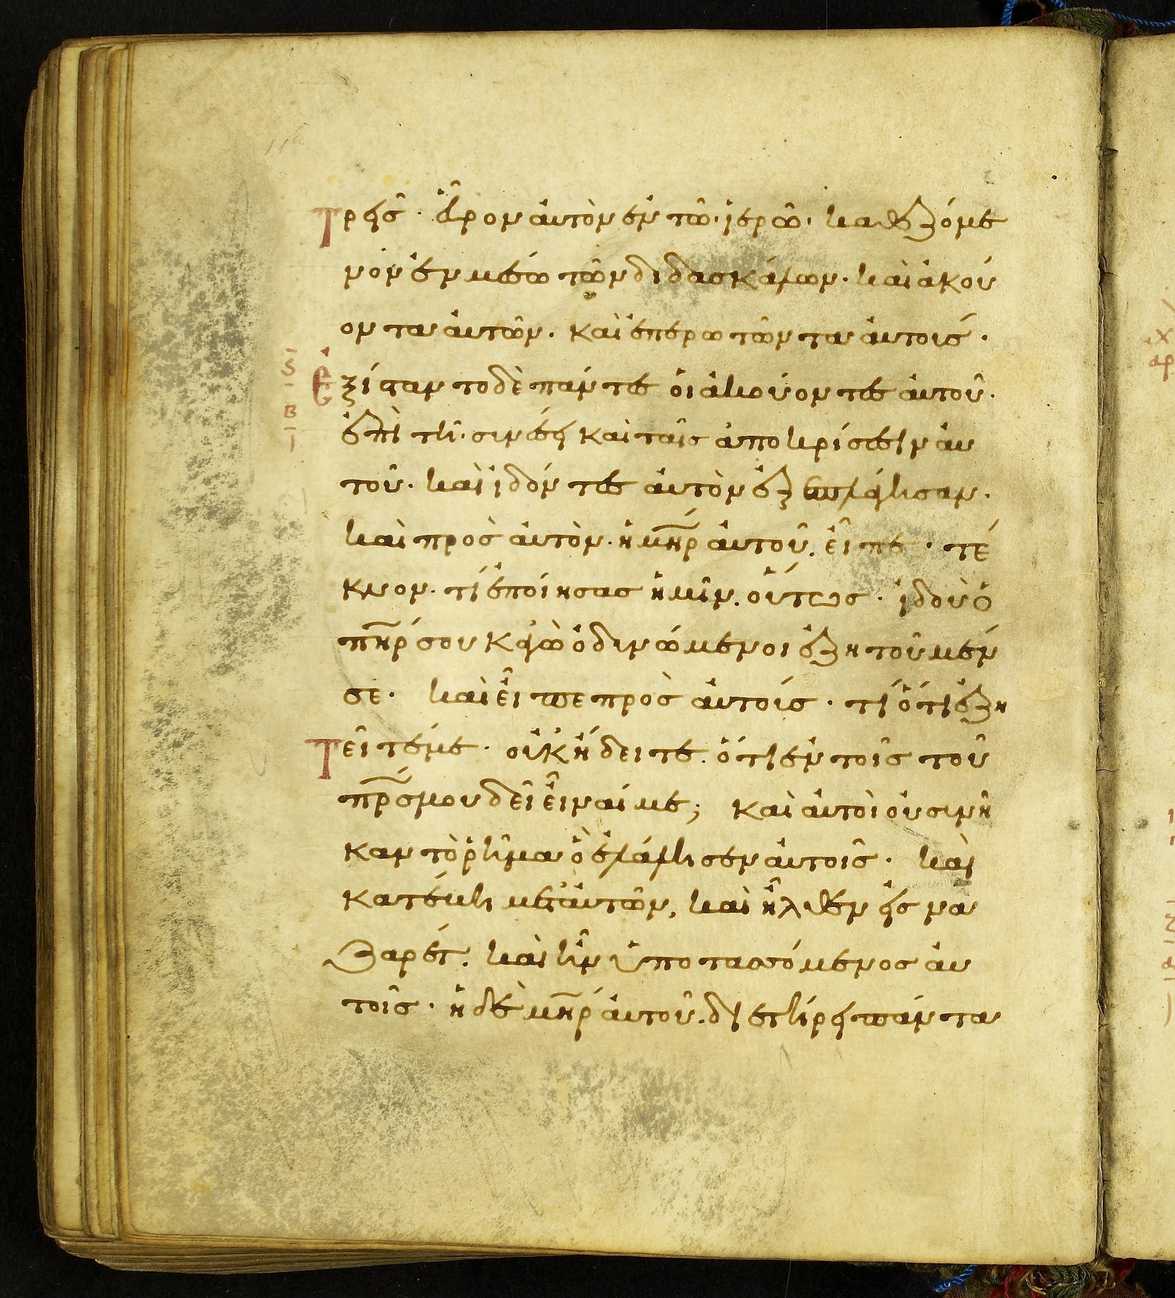 Τρεῖς· εὗρον αὐτὸν ἐν τῶ· ἱερῶ· καθεζόμε
νον ἐν μέσω τῶν διδασκάλων· καὶ ἀκού
οντα αὐτῶν. καὶ ἐπερωτῶντα αὐτοῖς·
Ἐξίσταντο δὲ πάντες οἱ ἀκούοντες αὐτοῦ·
ἐπὶ τῆ· συνέσει καὶ ταῖς ἀποκρίσεσιν αὐ
τοῦ· καὶ ἰδόντες αὐτὸν ἐξεπλάγησαν·
καὶ πρὸς αὐτὸν· ἡ μηρ αὐτοῦ. εἶπε· τέ
κνον· τί ἐποίησας ἡμῖν. οὕτως· ἰδοὺ ὁ
πηρ σου κἀγὼ ὀδυνώμενοι ἐζητοῦμέν
σε· καὶ εἶπε πρὸς αὐτούς· τί ὅτι ἐζη
Τεῖτέ με· οὐκ ἤδειτε· ὅτι ἐν τοῖς τοῦ
πρς μου δεῖ εἶναί με; καὶ αὐτοὶ οὐ συνῆ
καν τὸ ῥῆμα ὃ ἐλάλησεν αὐτοῖς· καὶ
κατέβη μετ' αὐτῶν, καὶ ἦλθεν εἰς να
ζαρέτ. καὶ ἦν ὑποτασσόμενος αὐ
τοῖς· ἡ δὲ μηρ αὐτοῦ· διετήρει πάντα